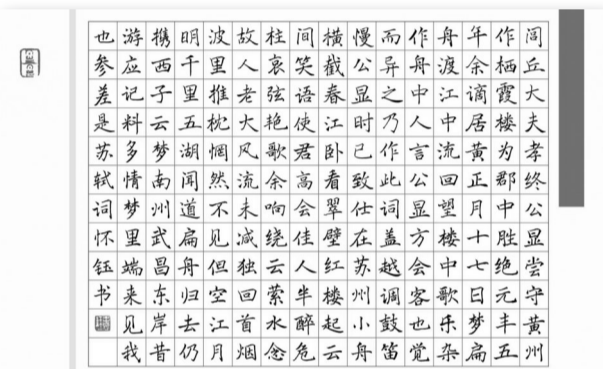 闾丘大夫孝终公显尝守黄州
作栖霞楼为郡中胜绝元丰五
年余谪居黄正月十七日梦扁
舟渡江中流回望楼中歌乐杂
作舟中人言公显方会客也觉
而异之乃作此词盖越调鼓笛
慢公显时已致仕在苏州小舟
横截春江卧看翠壁红楼起云
间笑语使君高会佳人半醉危
柱哀弦艳歌余响绕云萦水念
故人老大风流未减独回首烟
波里推枕惘然不见但空江月
明千里五湖闻道扁舟归去仍
携西子云梦南州武昌东岸昔
游应记料多情梦里端来见我
也参差是苏轼词怀钰书